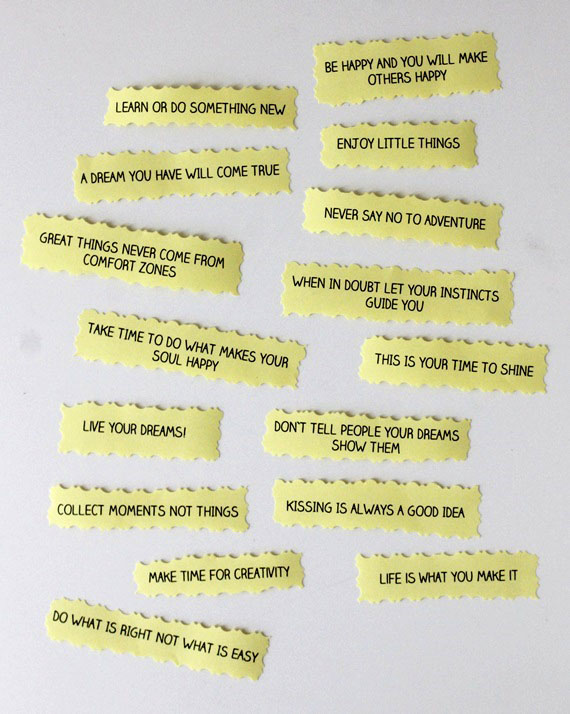 BE HAPPY AND YOU WILL MAKE
OTHERS HAPPY
LEARN OR DO SOMETHING NEW
ENJOY LITTLE THINGS
A DREAM YOU HAVE WILL COME TRUE
NEVER SAY NO TO ADVENTURE
GREAT THINGS NEVER COME FROM
COMFORT ZONES
WHEN IN DOUBT LET YOUR INSTINCTS
GUIDE YOU
TAKE TIME TO DO WHAT MAKES YOUR
SOUL HAPPY
THIS IS YOUR TIME TO SHINE
LIVE YOUR DREAMS!
DON'T TELL PEOPLE YOUR DREAMS
SHOW THEM
COLLECT MOMENTS NOT THINGS
KISSING IS ALWAYS A GOOD IDEA
MAKE TIME FOR CREATIVITY
LIFE IS WHAT YOU MAKE IT
DO WHAT IS RIGHT NOT WHAT IS EASY